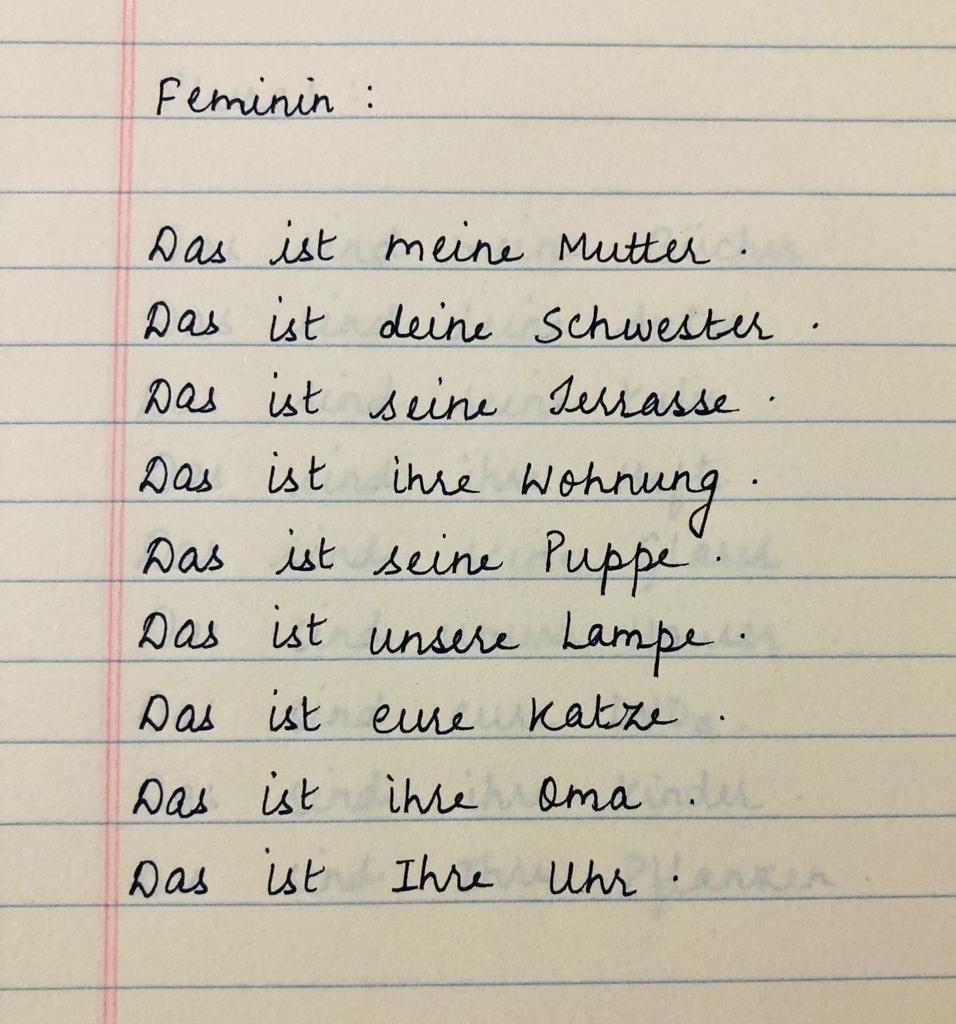 Feminin :
Das ist meine Mutter .
Das ist deine Schwester .
Das ist seine Terrasse .
Das ist ihre Wohnung .
Das ist seine Puppe .
Das ist unsere Lampe .
Das ist eure Katze .
Das ist ihre Oma .
Das ist Ihre Uhr .